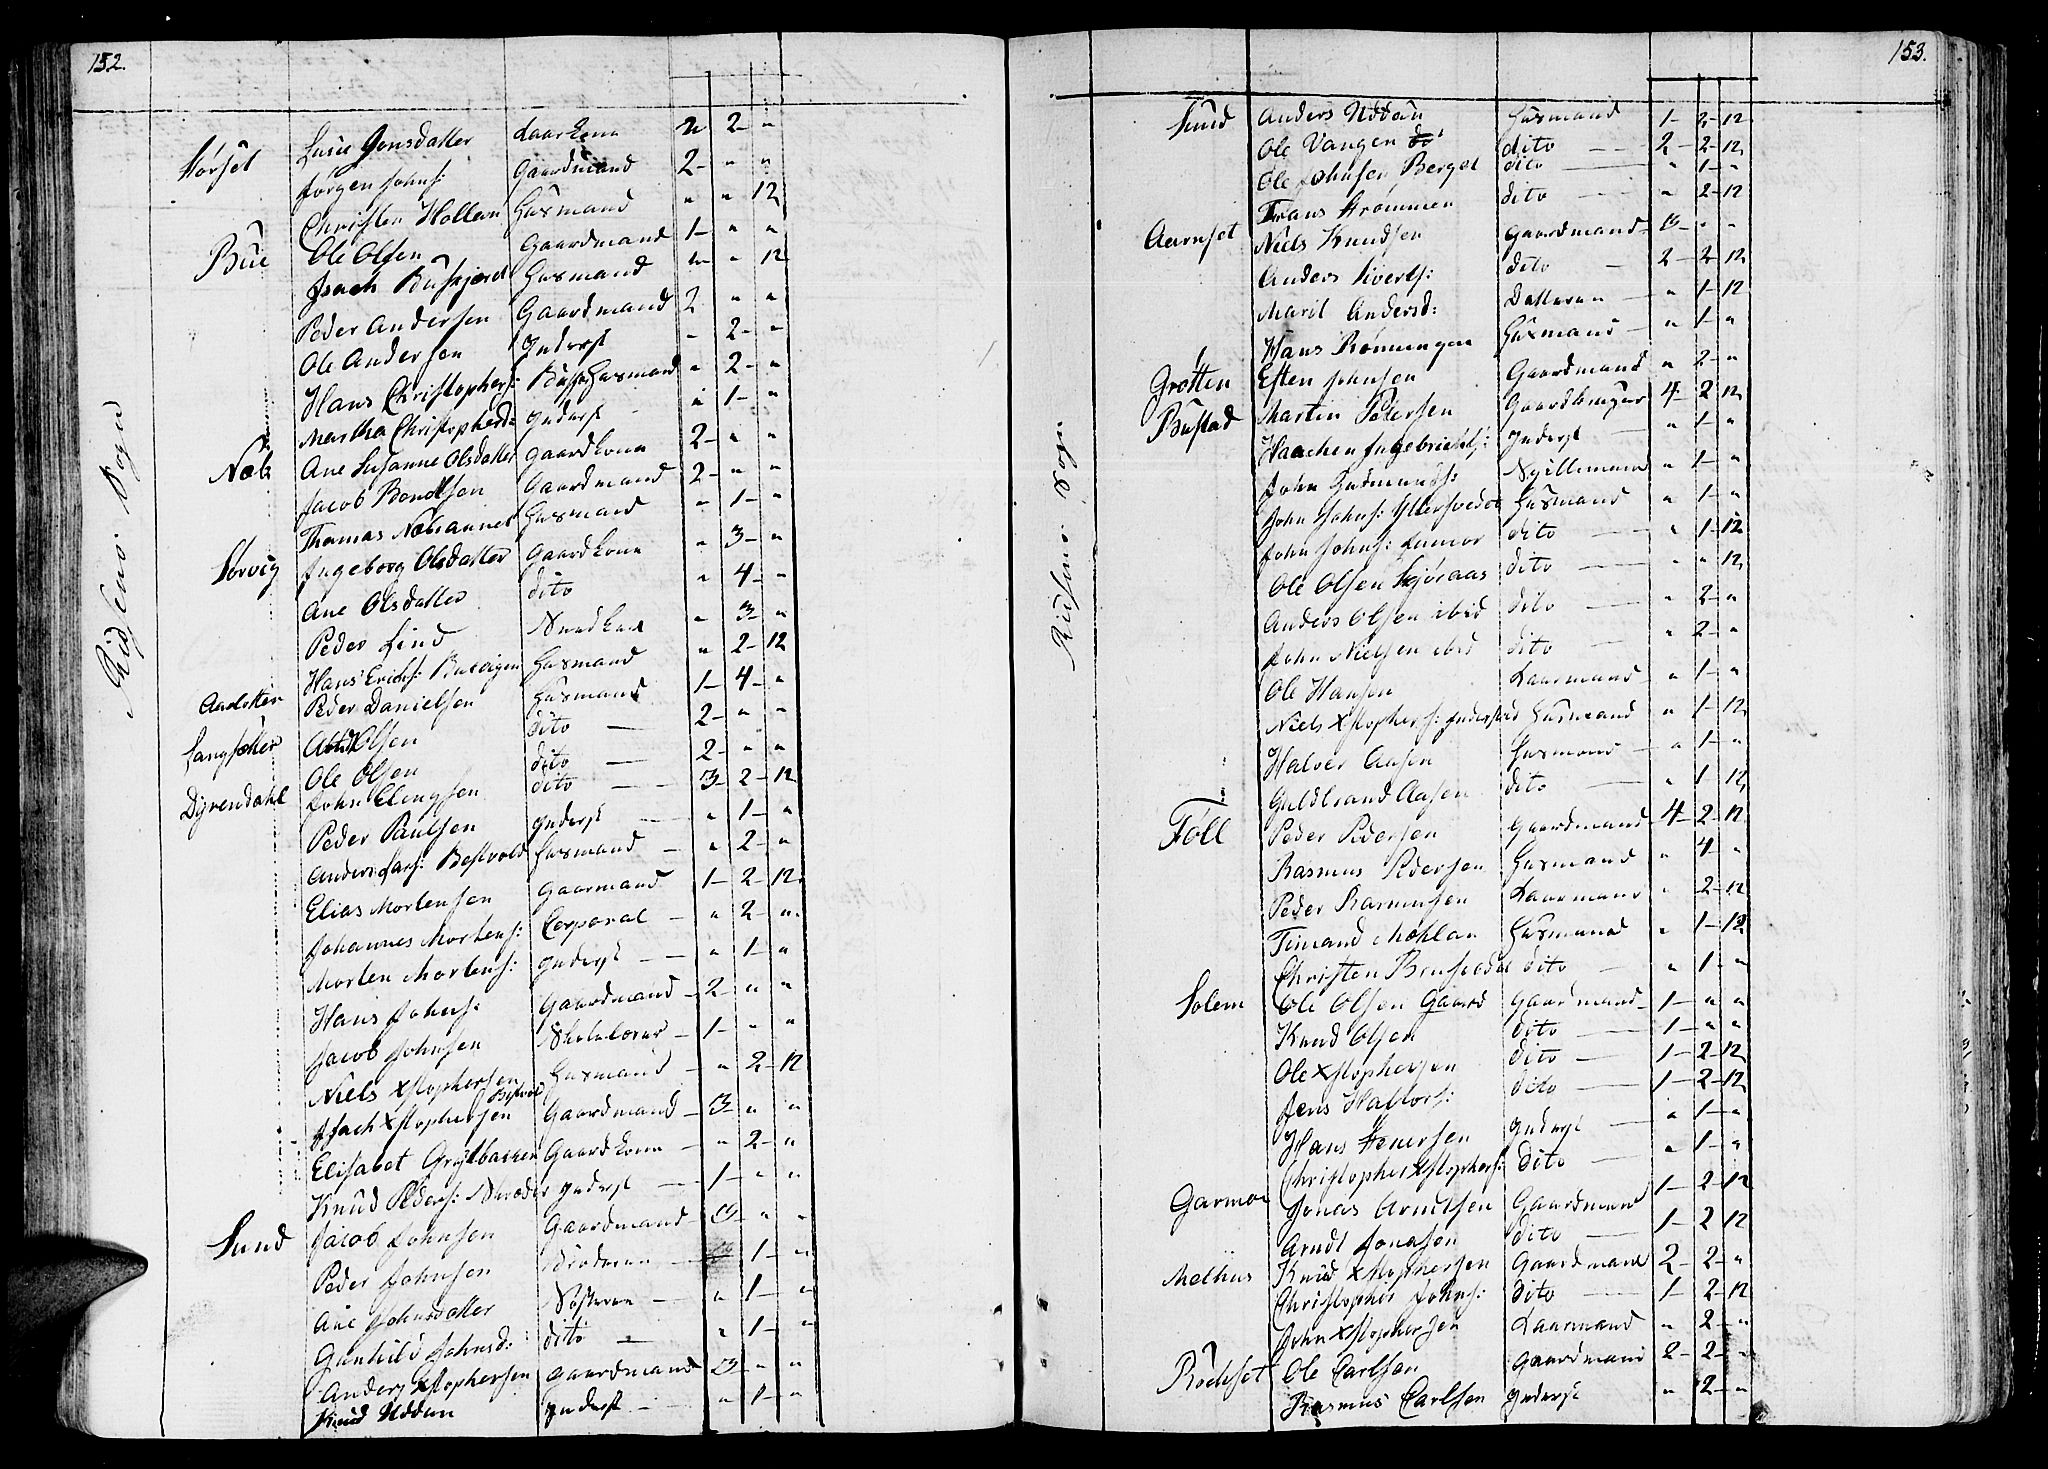 152.
Ridsens: Sogn
Størset Lucie Jonsdatter Kaarkona " 2- "
Jörgen Johns: Gaardmand 2- " "
Christen Hollevn Husmand " " 12
Bue Ole Olsen Gaardmand 1- " "
Isach Buskjeret Husmand " " 12
Peder Andersen Gaardmand 2 " "
Ole Andersen Inderst " 2- "
Hans Christophers: Husmand " 2- "
Martha Christophersd: Inderst " 1- "
Næb Ane Susanne Olsdatter Gaardkona 2- " "
Jacob Bendtsen Gaardmand 2- " "
Thomas Næbannet Husmand " 1- "
Sørvig Ingeborg Olsdatter Gaardkona " 3- "
Ane Olsdatter dito " 4- "
Peder Lind Snedker " 3- "
Hans Erichs: Busvigen Husmand " 2- 12
Peder Danielsen Husmand 1- 4- "
Langsætter Olsen dito — 2- " "
Ole Olsen dito — 2- " "
Dyrendahl John Elingsen dito — 3- 2- 12
Peder Paulsen Inderst — " 1- "
Anders Lars: Bestvold Husmand — " 2- "
Elias Mortensen Gaarmand 1- 2- 12
Johannes Mortens: Corporal — " 2- "
Morten Mortens: Inderst — " 1- "
Hans Johns: Gaardmand — 2- " "
Jacob Johnsen Skolelærer — 1- " "
Niels Xstophersen Bestvol Husmand — " 2- 12
Isach Xstophersen Gaardmand — 3- " "
Elisabet Grytbakken Gaardkona — " 2- "
Knud Peders: Skrœder Inderst — 1- " "
Sund Jacob Johnsen Gaardmand — 3- " "
Peder Johnsen Broderen — 1- "
Ane Johnsdatter Søsteren — " 1- "
Gunhild Johnsd: dito " 1- "
Anders Xstophersen Gaardmand 3- " "
Knud Uddun Inderst — " 1- "
153.
Ridsens: Sogn
Sund Anders Uddun Husmand 1- 2- 12
Ole Vangen dito — 2- 2- 12
Ole Johnsen Berget dito — " 1- "
Frans Strømmen dito — " 2- 12
Aarnset Niels Knudsen Gaardmand- 3- " "
Anders Siverts: dito — 2- 2- 12
Marit Andersd: Datteren — " 1- 12
Hans Rønningen Husmand — " 1- "
Grøtten Esten Johnsen Gaardmand " 2- "
Bustad Martin Petersen Gaardbruger 4- 2 12
Haachen Ingebrichts: Inderst — " 1- "
John Gudmunds: " 1- "
John Johns: Husmand " 1- "
John Johns: Junior dito — " 1- 12
Ole Olsen Skjøraas dito — " " 12
Anders Olsen ibid dito — " 2- "
John Nielsen ibid dito — " 2- "
Ole Hansen Kaarmand " 1- "
Niels Xstophers: Husmand " 1- 12
Halvor Aasen Husmand — " 1- "
Guldbrand Aasen dito — " 1 12
Foll Peder Pedersen Gaardmand 4- 2- 12
Rasmus Pedersen Husmand " 4- "
Peder Rasmusen Kaarmand " 2- 12
Timand Mohlan Husmand " 1- 12
Christen dito — " 1- "
Solem Ole Olsen Gaard Gaardmand- 1- " "
Knud Olsen dito — 1- " "
Ole Xstophersen dito — 1- 2- 12
Jens Hallvors: dito — 1- 2- 12
Hans Iversen Inderst — " 1- "
Christopher Xstophers: dito — " 1- "
Garmoe Jonas Arndtsen Gaardmand 1- 2- 12
Arndt Jonasen dito — 1- 2 12
Melhus Knud Xstophersen Gaardmand 2- 2- "
Christopher Johns: dito — 1- 2- 12
John Xstophersen Kaarmand " 2- "
Rödset Ole Carlsen Gaardmand 2- 2- "
Rasmus Carlsen Inderst " 2- "